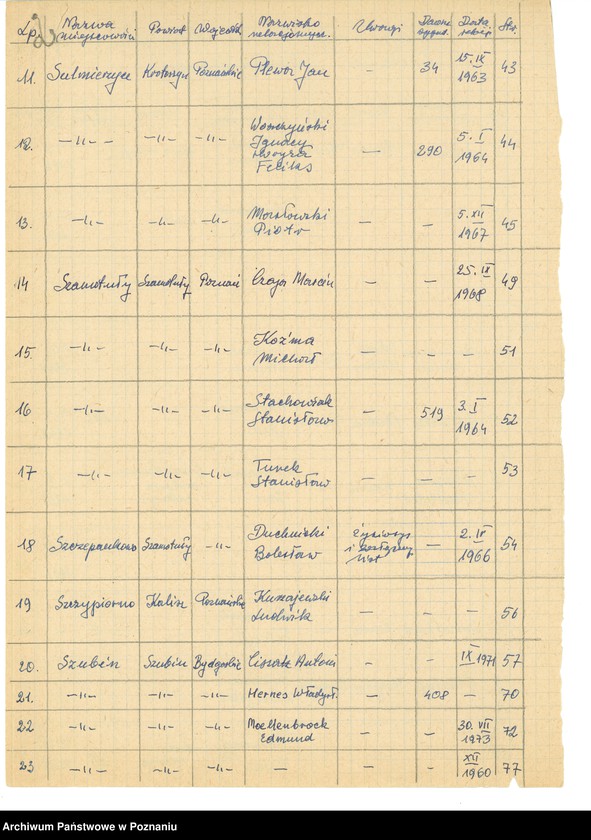 Lp. Nazwa miejscowości Powiat Województ. Nazwisko relacjonującego. Uwagi Dawne sygnat. Data Str.
11. Sulmierzyce Krotoszyn Poznańskie Plewa Jan - 34 15. IX 1963 43
12. -"- -"- -"- Ignacy Feliks - 290 5. I 1964 44
13. -"- -"- -"- Piotr - - 5. XII 1967 45
14 Szamotuły Szamotuły Poznań Czaja Marcin - - 25. IX 1968 49
15. -"- -"- -"- Koźma Michał - - - 51
16 -"- -"- -"- Stachowiak Stanisław - 519 3. I 1964 52
17 -"- -"- -"- Turek Stanisław - - - 53
18 Szczepankowo Szamotuły -"- Bolesław życiorys i list - 2. IV 1966 54
19 Szczypiorno Kalisz Poznańskie Ludwik - - - 56
20. Szubin Szubin Bydgoskie Antoni - - IX 1971 57
21. -"- -"- -"- Hernes Władysł. - 408 - 70
22 -"- -"- -"- Moellenbrock Edmund - - 30. VII 1973 72
23 -"- -"- -"- - - - XII 1960 77
Archiwum Państwowe w Poznaniu